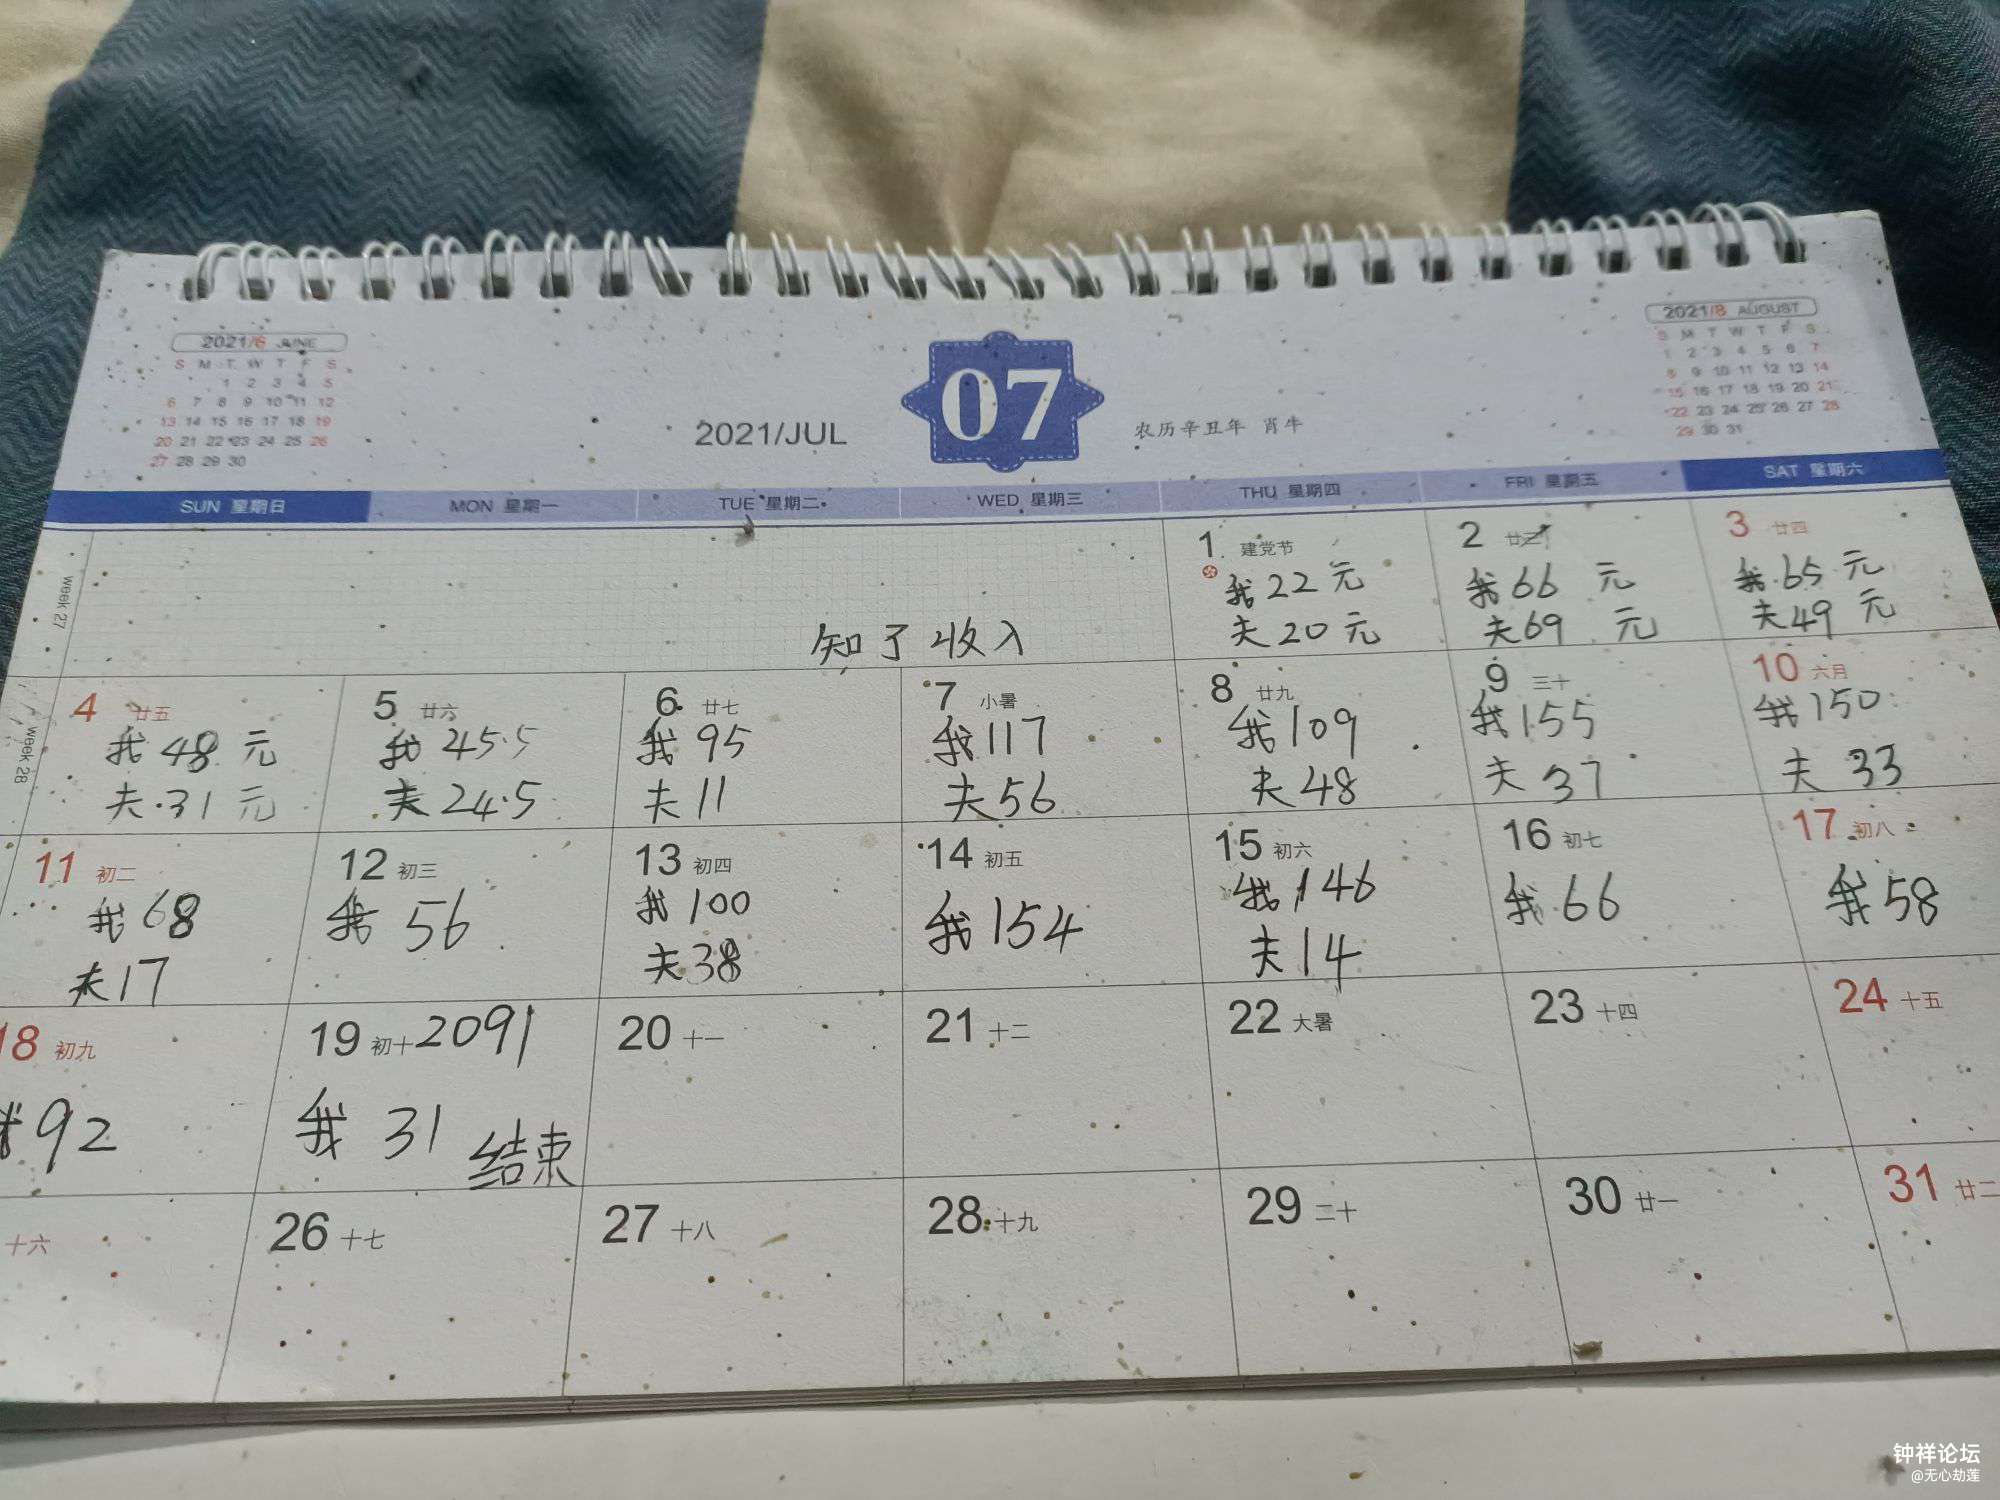 2021/6 JUNE
S M T W T F S
1 2 3 4 5
6 7 8 9 10 11 12
13 14 15 16 17 18 19
20 21 22 23 24 25 26
27 28 29 30
2021/JUL
07
农历辛丑年 肖牛
2021/8 AUGUST
S M T W T F S
1 2 3 4 5 6 7
8 9 10 11 12 13 14
15 16 17 18 19 20 21
22 23 24 25 26 27 28
29 30 31
SUN 星期日 MON 星期一 TUE 星期二 WED 星期三 THU 星期四 FRI 星期五 SAT 星期六
week 27
知了收入
1 建党节
我22元
夫20元
2 廿三
我66 元
夫69 元
3 廿四
我65元
夫49元
week 28
4 廿五
我48元
夫31元
5 廿六
我 45.5
夫 24.5
6 廿七
我 95
夫 11
7 小暑
我117
夫56
8 廿九
我109
夫48
9 三十
我155
夫 37
10 六月
我150
夫 33
11 初二
我68
夫17
12 初三
我 56
13 初四
我 100
夫38
14 初五
我154
15 初六
我146
夫14
16 初七
我66
17 初八
我58
18 初九
我92
19 初十 2091
我 31 结束
20 十一
21 十二
22 大暑
23 十四
24 十五
十六
26 十七
27 十八
28 十九
29 二十
30 廿一
31 廿二
钟祥论坛
@无心劫莲